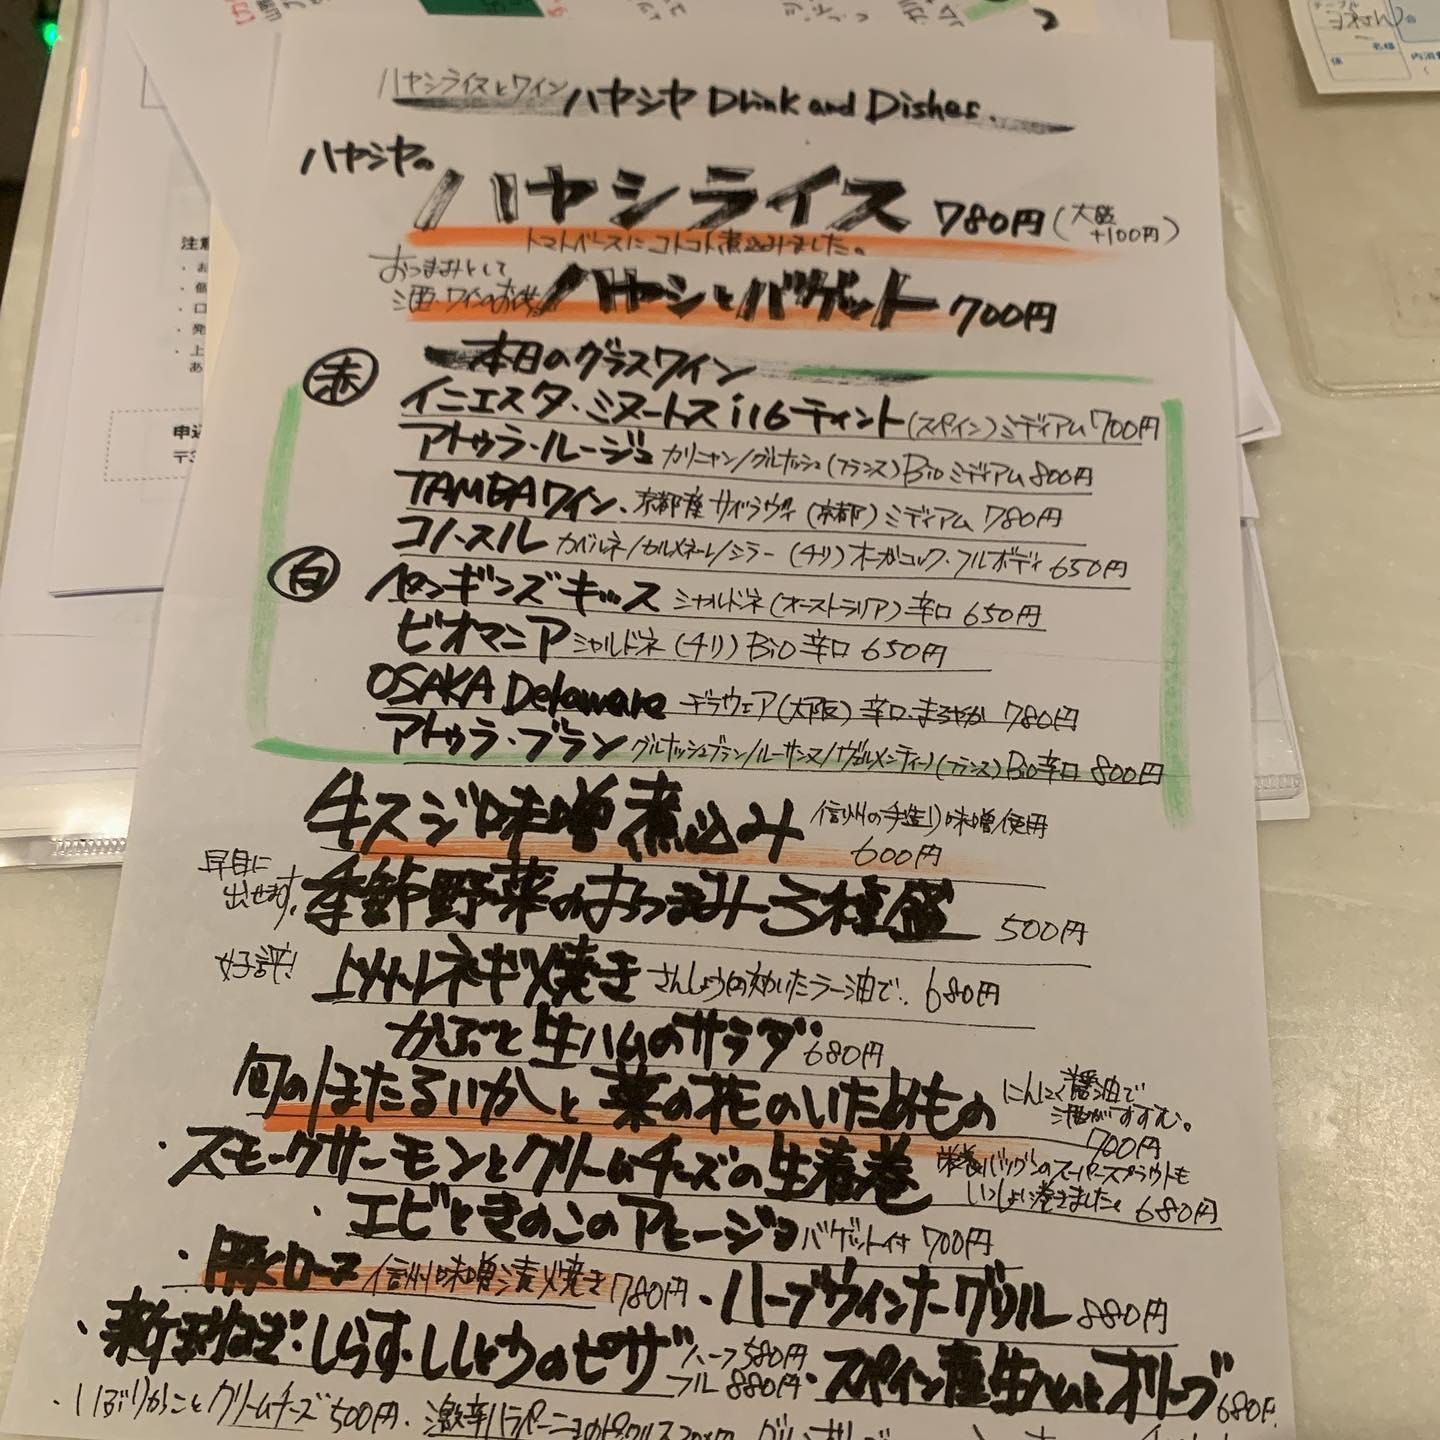 ハヤシライスとワイン ハヤシヤ Drink and Dishes.
ハヤシヤの
ハヤシライス 780円(大盛+100円)
トマトベースにコトコト煮込みました。
おつまみとして
酒・ワインのお供 ハヤシとバゲット 700円
本日のグラスワイン
赤
イニエスタ・ミヌートス116ティント(スペイン)ミディアム700円
アトゥラ・ルージュ カリニャン/グルナッシュ(フランス)Bioミディアム800円
TAMBAワイン、京都産サペラヴィ(京都)ミディアム780円
コノスル カベルネ/カルメネーレ/シラー(チリ)オーガニック・フルボディ650円
白
ペンギンズキッス シャルドネ(オーストラリア)辛口650円
ビオマニア シャルドネ(チリ)Bio辛口650円
OSAKA Delaware デラウェア(大阪)辛口・まろやか780円
アトゥラ・ブラン グルナッシュブラン/ルーサンヌ/ヴェルメンティーノ(フランス)Bio辛口800円
牛スジ味噌煮込み 信州の手造り味噌使用
600円
早目に出せます。 季節野菜のおつまみ3種盛 500円
好評! 上州ネギ焼き さんしょうの効いたラー油で。680円
かぶと生ハムのサラダ 680円
旬のほたるいかと菜の花のいためもの にんにく醤油で酒がすすむ。
700円
・スモークサーモンとクリームチーズの生春巻 栄養バツグンのスーパースプラウトもいっしょに巻きました。680円
・エビときのこのアヒージョ バゲット付 700円
・豚ロース 信州味噌漬け焼き 780円・ハーブウィンナーグリル 880円
・新玉ねぎ・しらす・ししとうのピザ ハーフ580円 フル880円・スペイン産生ハムとオリーブ 680円
・いぶりがっことクリームチーズ 500円・激辛ハラペーニョのピクルス
注意
申込
〒3